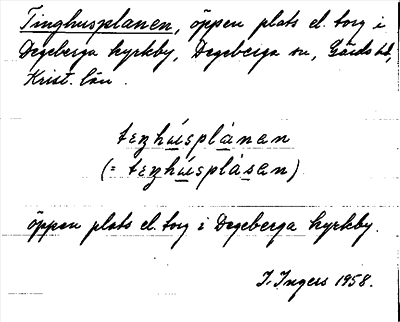 Tinghusplanen, öppen plats el. torg i
Degeberga kyrkby, Degeberga sn, Gärds hd,
Krist. län.
teŋhúsplánan
(= teŋhúsplásen)
öppen plats el. torg i Degeberga kyrkby.
I. Ingers 1958.